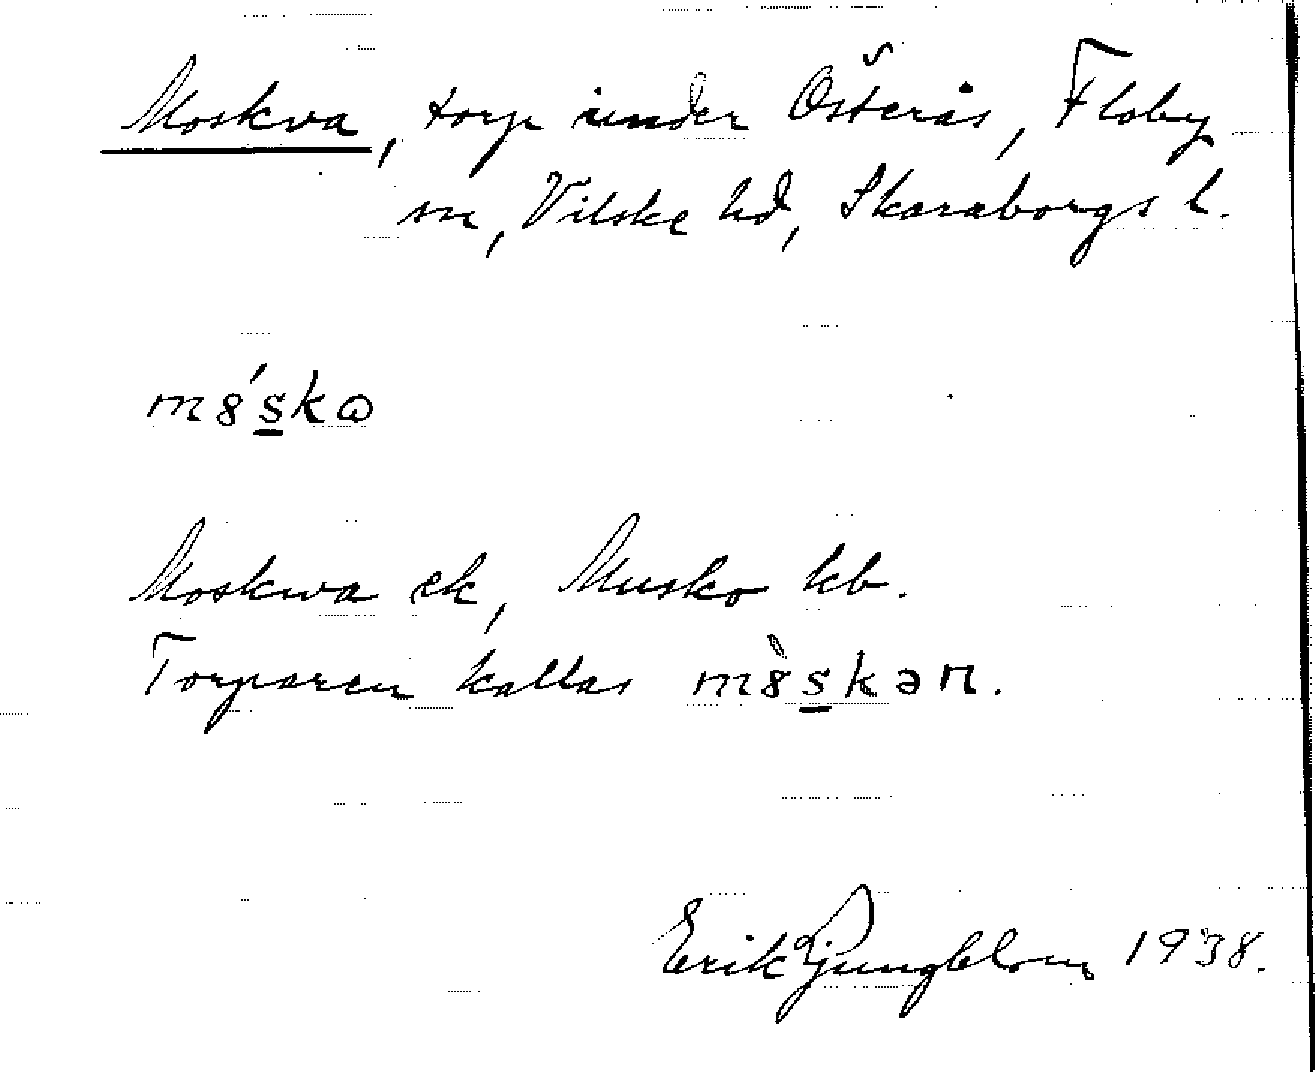 Moskva, torp under Österås, Floby
sn, Vilske hd, Skaraborgs l.
m8́s̲kɷ
Moskwa ek, Musko kb.
Torparen kallas m8̀s̲kən.
Erik Ljungblom 1938.